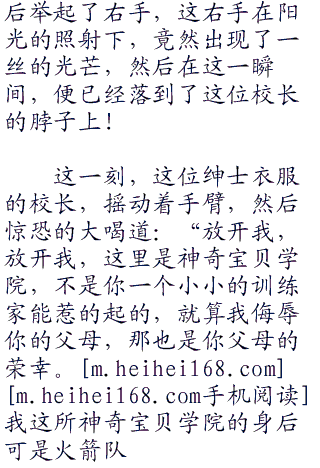 后举起了右手，这右手在阳
光的照射下，竟然出现了一
丝的光芒，然后在这一瞬
间，便已经落到了这位校长
的脖子上！
这一刻，这位绅士衣服
的校长，摇动着手臂，然后
惊恐的大喝道：“放开我，
放开我，这里是神奇宝贝学
院，不是你一个小小的训练
家能惹的起的，就算我侮辱
你的父母，那也是你父母的
荣幸。[m.heihei168.com]
[m.heihei168.com手机阅读]
我这所神奇宝贝学院的身后
可是火箭队